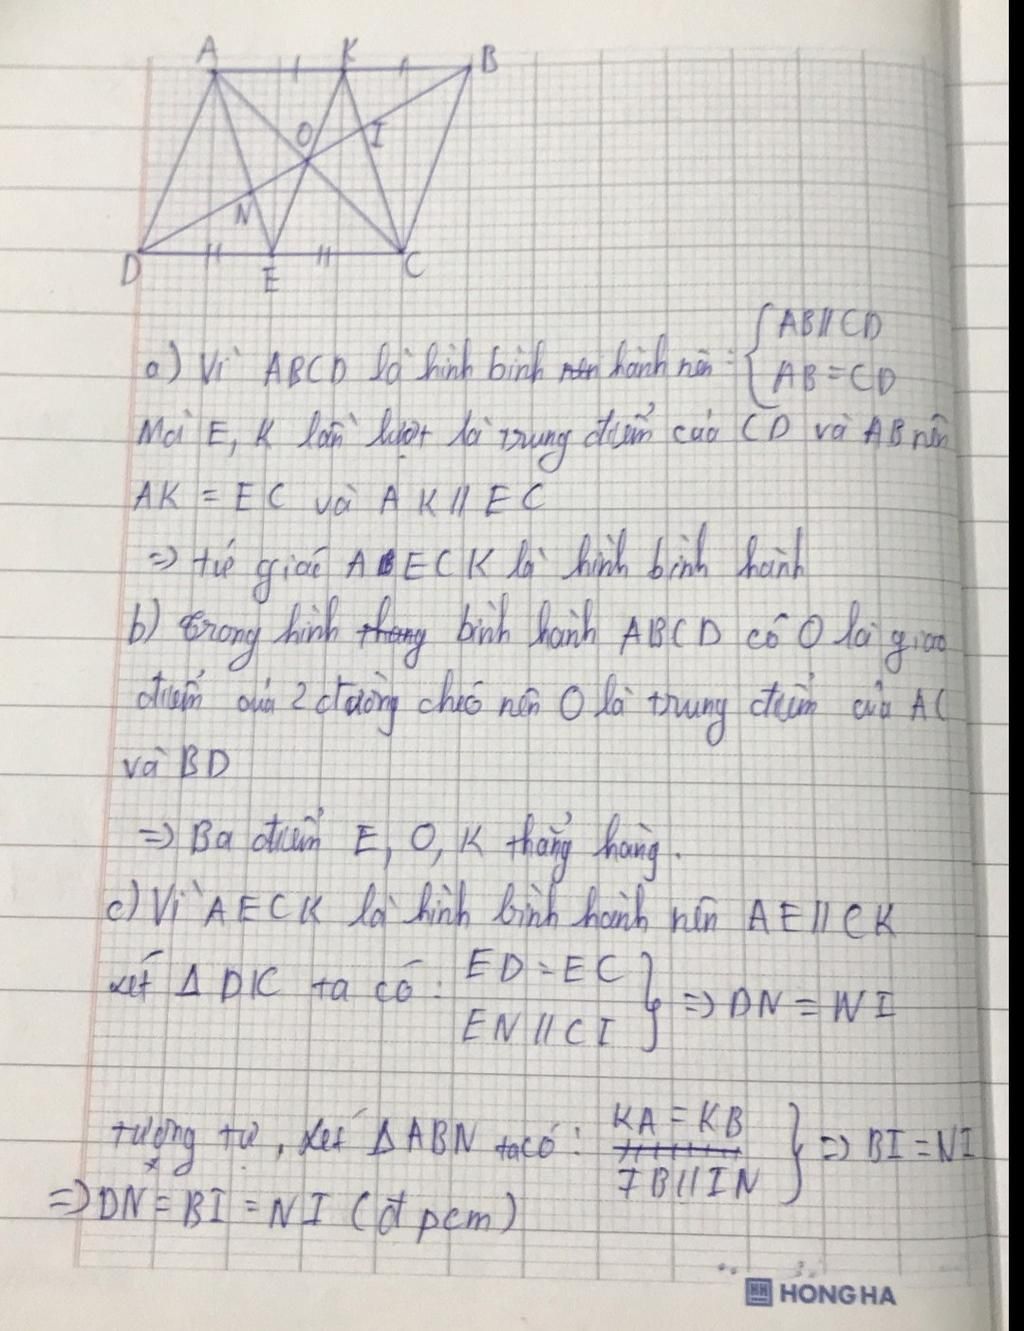 A K B
O I
N
D E C
a) Vì ABCD là hình bình hành nên : { AB // CD
AB = CD
Mà E, K lần lượt là trung điểm của CD và AB nên
AK = EC và AK // EC
=> tứ giác AECK là hình bình hành
b) Trong hình thang bình hành ABCD có O là giao
điểm của 2 đường chéo nên O là trung điểm của AC
và BD
=> Ba điểm E, O, K thẳng hàng.
c) Vì AECK là hình bình hành nên AE // CK
xét Δ DIC ta có : ED = EC } => DN = NI
EN // CI
tương tự, xét ΔABN ta có : KA = KB } => BI = NI
IB // IN
=> DN = BI = NI (đpcm)
HH HONG HA